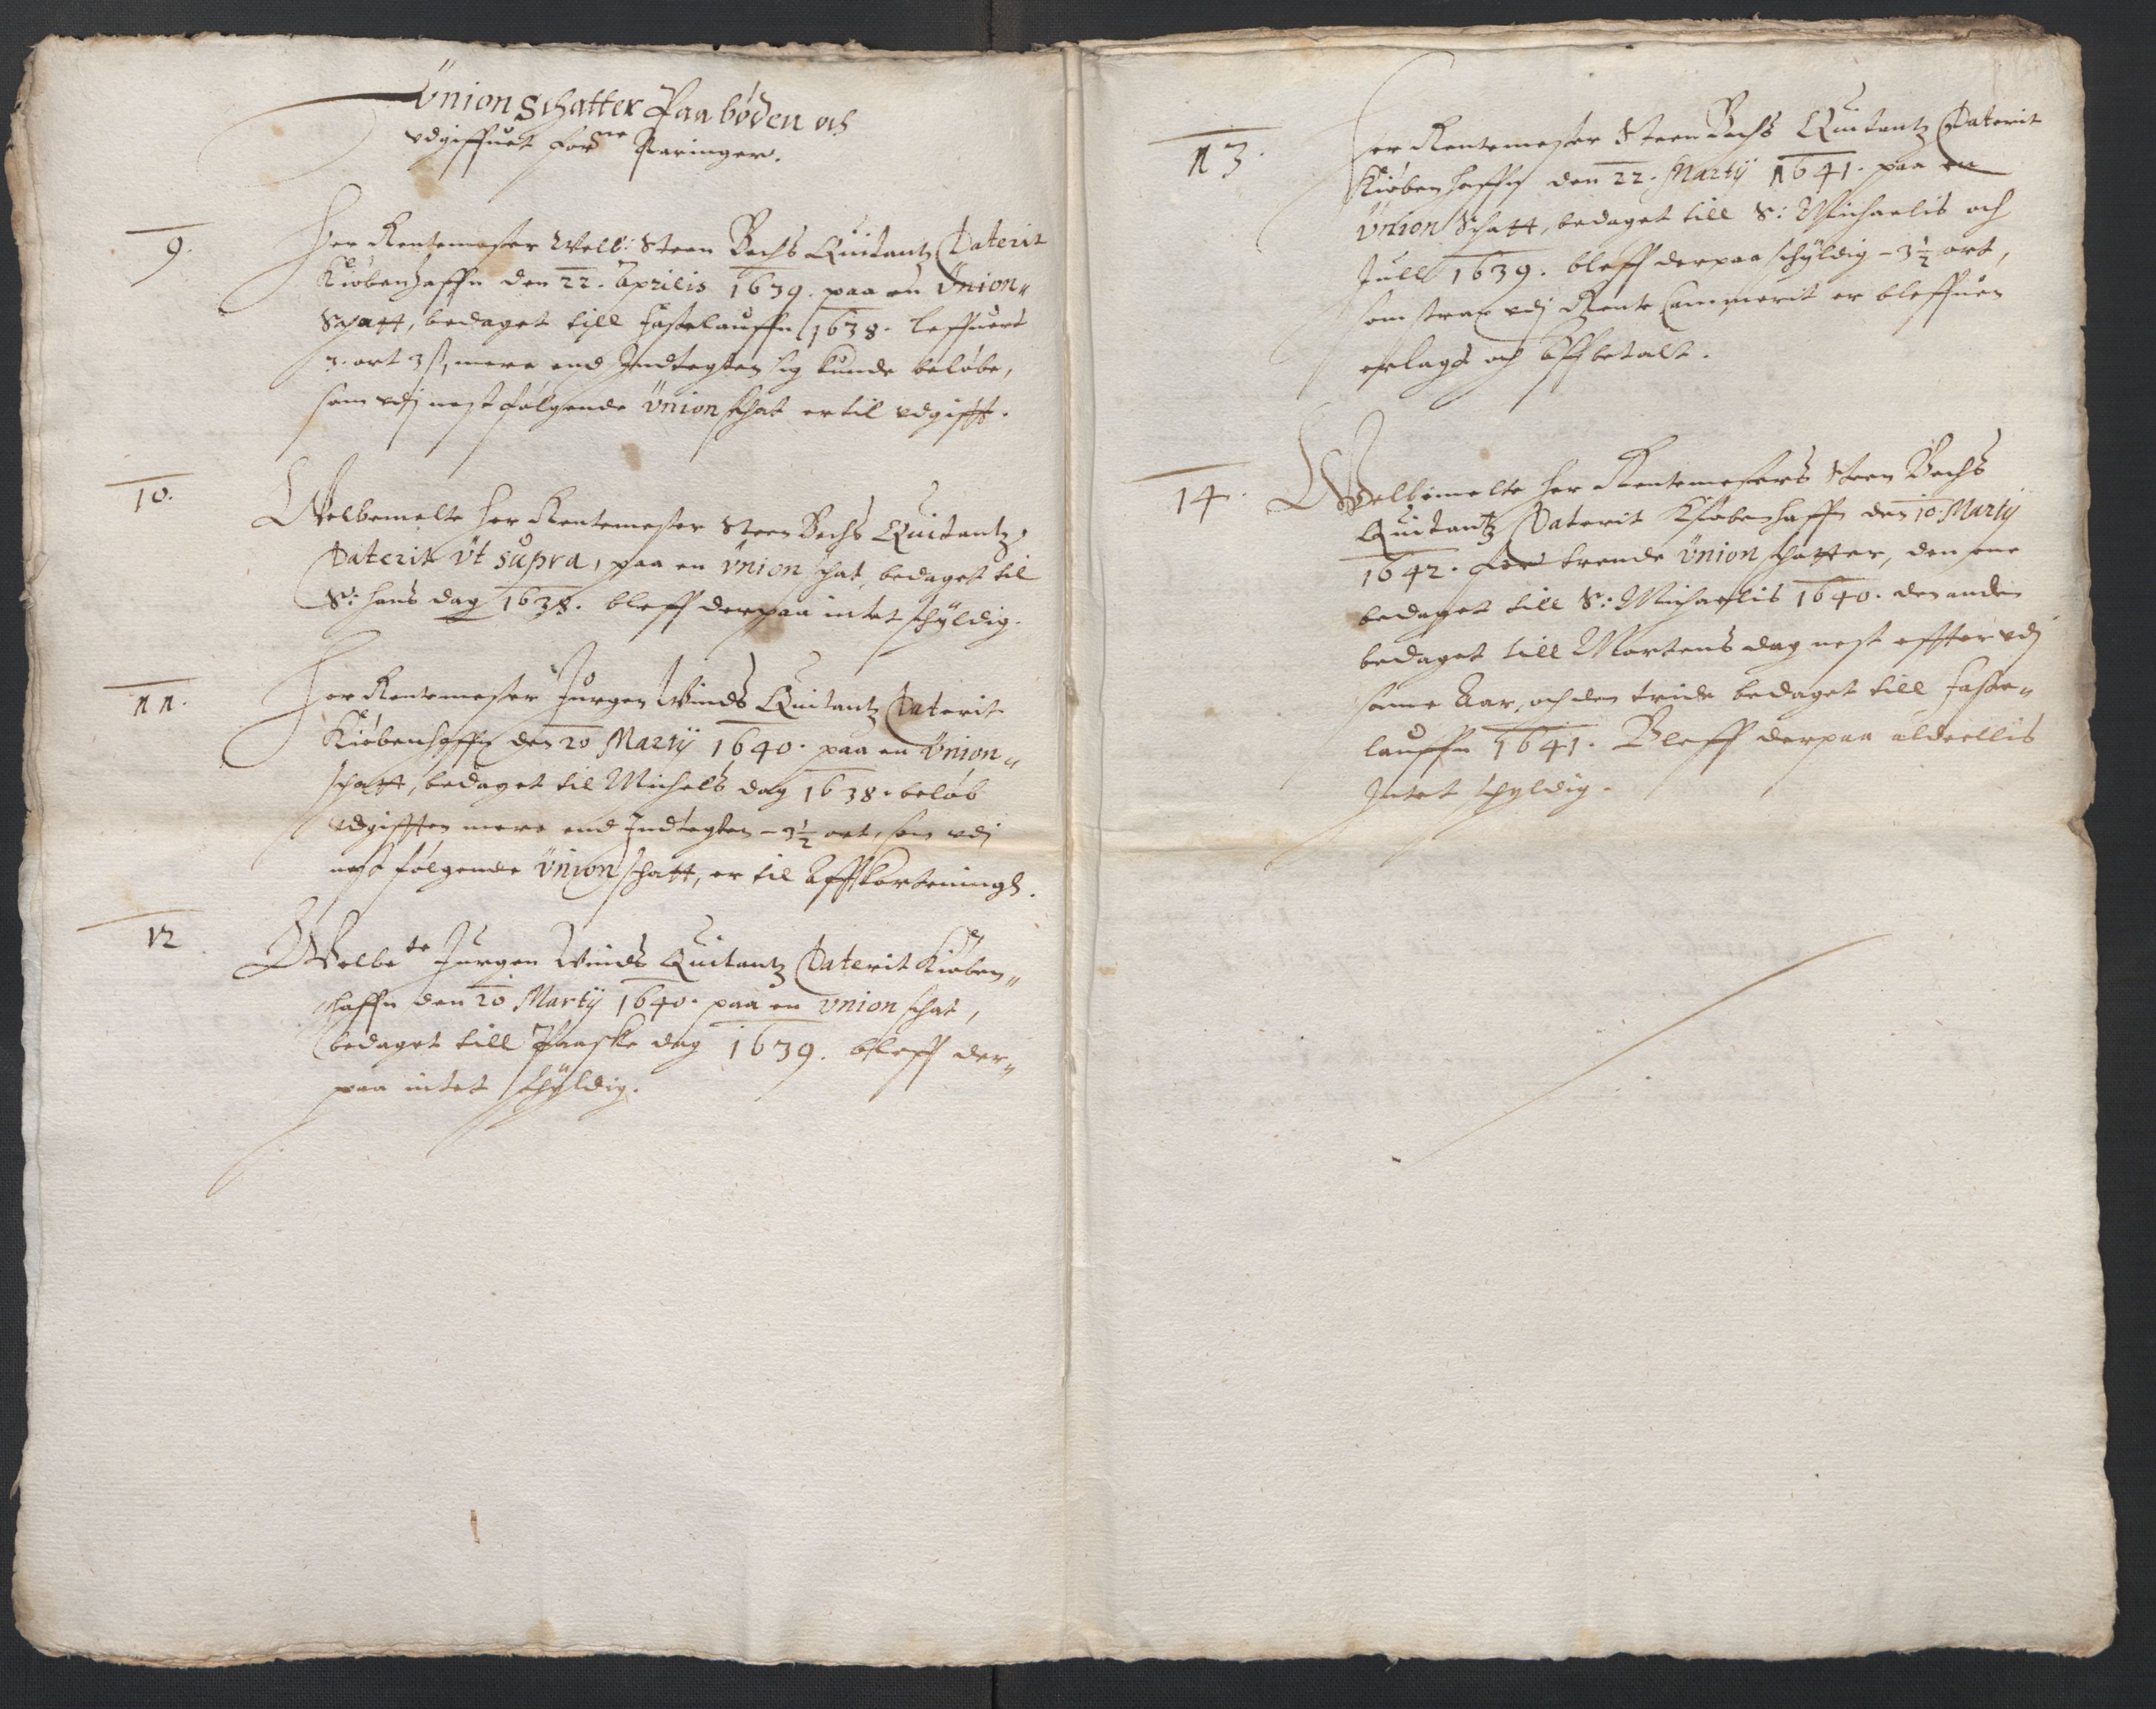 Union Schatter Paabøden och
vdgiffuet for^ne Karinger.
9.
Her Rentemester Welb: Steen Bechs Quitantz Daterit
Kiøbenhaffn den 22. Aprilis 1639. paa en Union„
Schatt, bedaget till fastelauffn 1638. leffuert
3. ort 3 ß, mere end Indtegten sig kunde beløbe,
som vdj nest følgende Union schat er til vdgifft.
10.
Welbemelte Her Rentemester Steen Bechs Quitantz,
Daterit Ut supra, paa en Union schat, bedaget til
S: Hans dag 1638. bleff derpaa intet schÿldig.
11.
Her Rentemester Jürgen Winds Quitantz Daterit
Kiøbenhaffn den 20 Martij 1640. paa en Union„
schatt, bedaget til Michels dag 1638. beløb
vdgifften mere end Indtegten - 3½ ort, som vdj
nest følgende Union schatt, er til Affkorteningh.
12
Welbe^te Jurgen Winds Quitantz Daterit Kiøben„
haffn den 20 Martij 1640. paa en Union schat,
bedaget till Paaske dag 1639. bleff der„
paa intet schÿldig.
13.
Her Rentemester Steen Bechs Quitantz Daterit
Kiøbenhaffn den 22. Martij 1641. paa en
Union Schatt, bedaget till S: Michaelis och
Jull 1639. bleff derpaa schÿldig - 3½ ort,
som strax vdj Rente Cammerit er bleffuen
erlagd och affbetalt.
14.
Welbemelte Her Rentemesters Steen Bechs
Quitantz Daterit Kiøbenhaffn den 10. Martij
1642. For trende Union schatter, den ene
bedaget till S: Michaelis 1640. den anden
bedaget till Mortens dag nest effter vdj
samme Aar, och den tride bedaget till faste„
lauffn 1641. Bleff derpaa aldeellis
Intet schyldig.